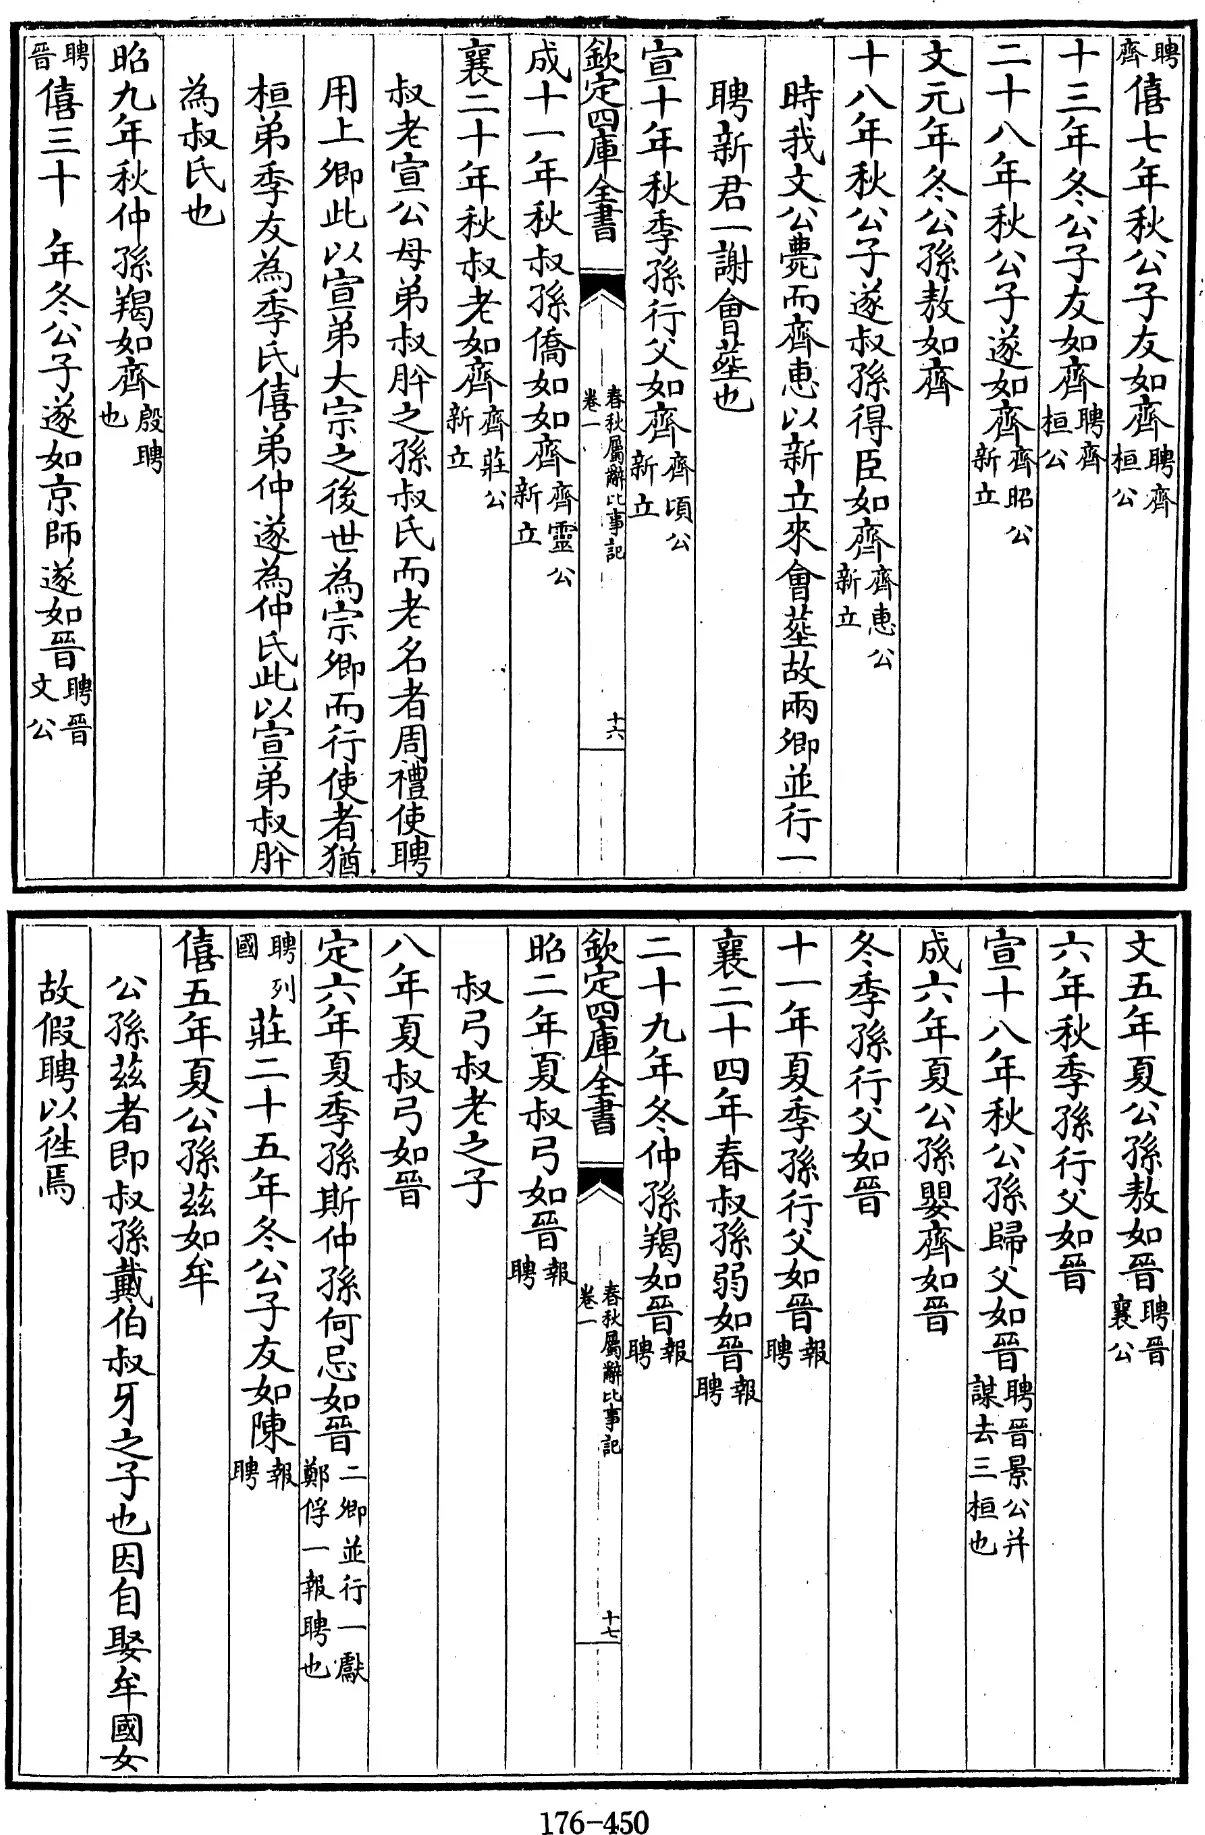 聘齊僖七年秋公子友如齊聘齊桓公
十三年冬公子友如齊聘齊桓公
二十八年秋公子遂如齊齊昭公新立
文元年冬公孫敖如齊
十八年秋公子遂叔孫得臣如齊齊惠公新立
時我文公薨而齊惠以新立來會塟故兩卿並行一
聘新君一謝會塟也
宣十年秋季孫行父如齊齊頃公新立
欽定四庫全書
春秋屬辭比事記
卷一
十六
成十一年秋叔孫僑如如齊齊靈公新立
襄二十年秋叔老如齊齊莊公新立
叔老宣公母弟叔肸之孫叔氏而老名者周禮使聘
用上卿此以宣弟大宗之後世為宗卿而行使者猶
桓弟季友為季氏僖弟仲遂為仲氏此以宣弟叔肸
為叔氏也
昭九年秋仲孫貜如齊殷聘也
聘晉僖三十 年冬公子遂如京師遂如晉聘晉文公
文五年夏公孫敖如晉聘晉襄公
六年秋季孫行父如晉
宣十八年秋公孫歸父如晉聘晉景公并謀去三桓也
成六年夏公孫嬰齊如晉
冬季孫行父如晉
十一年夏季孫行父如晉報聘
襄二十四年春叔孫弱如晉報聘
二十九年冬仲孫羯如晉報聘
欽定四庫全書
春秋屬辭比事記
卷一
十七
昭二年夏叔弓如晉報聘
叔弓叔老之子
八年夏叔弓如晉
定六年夏季孫斯仲孫何忌如晉二卿並行一獻鄭俘一報聘也
聘列國莊二十五年冬公子友如陳報聘
僖五年夏公孫茲如牟
公孫茲者即叔孫戴伯叔牙之子也因自娶牟國女
故假聘以徃焉
176-450